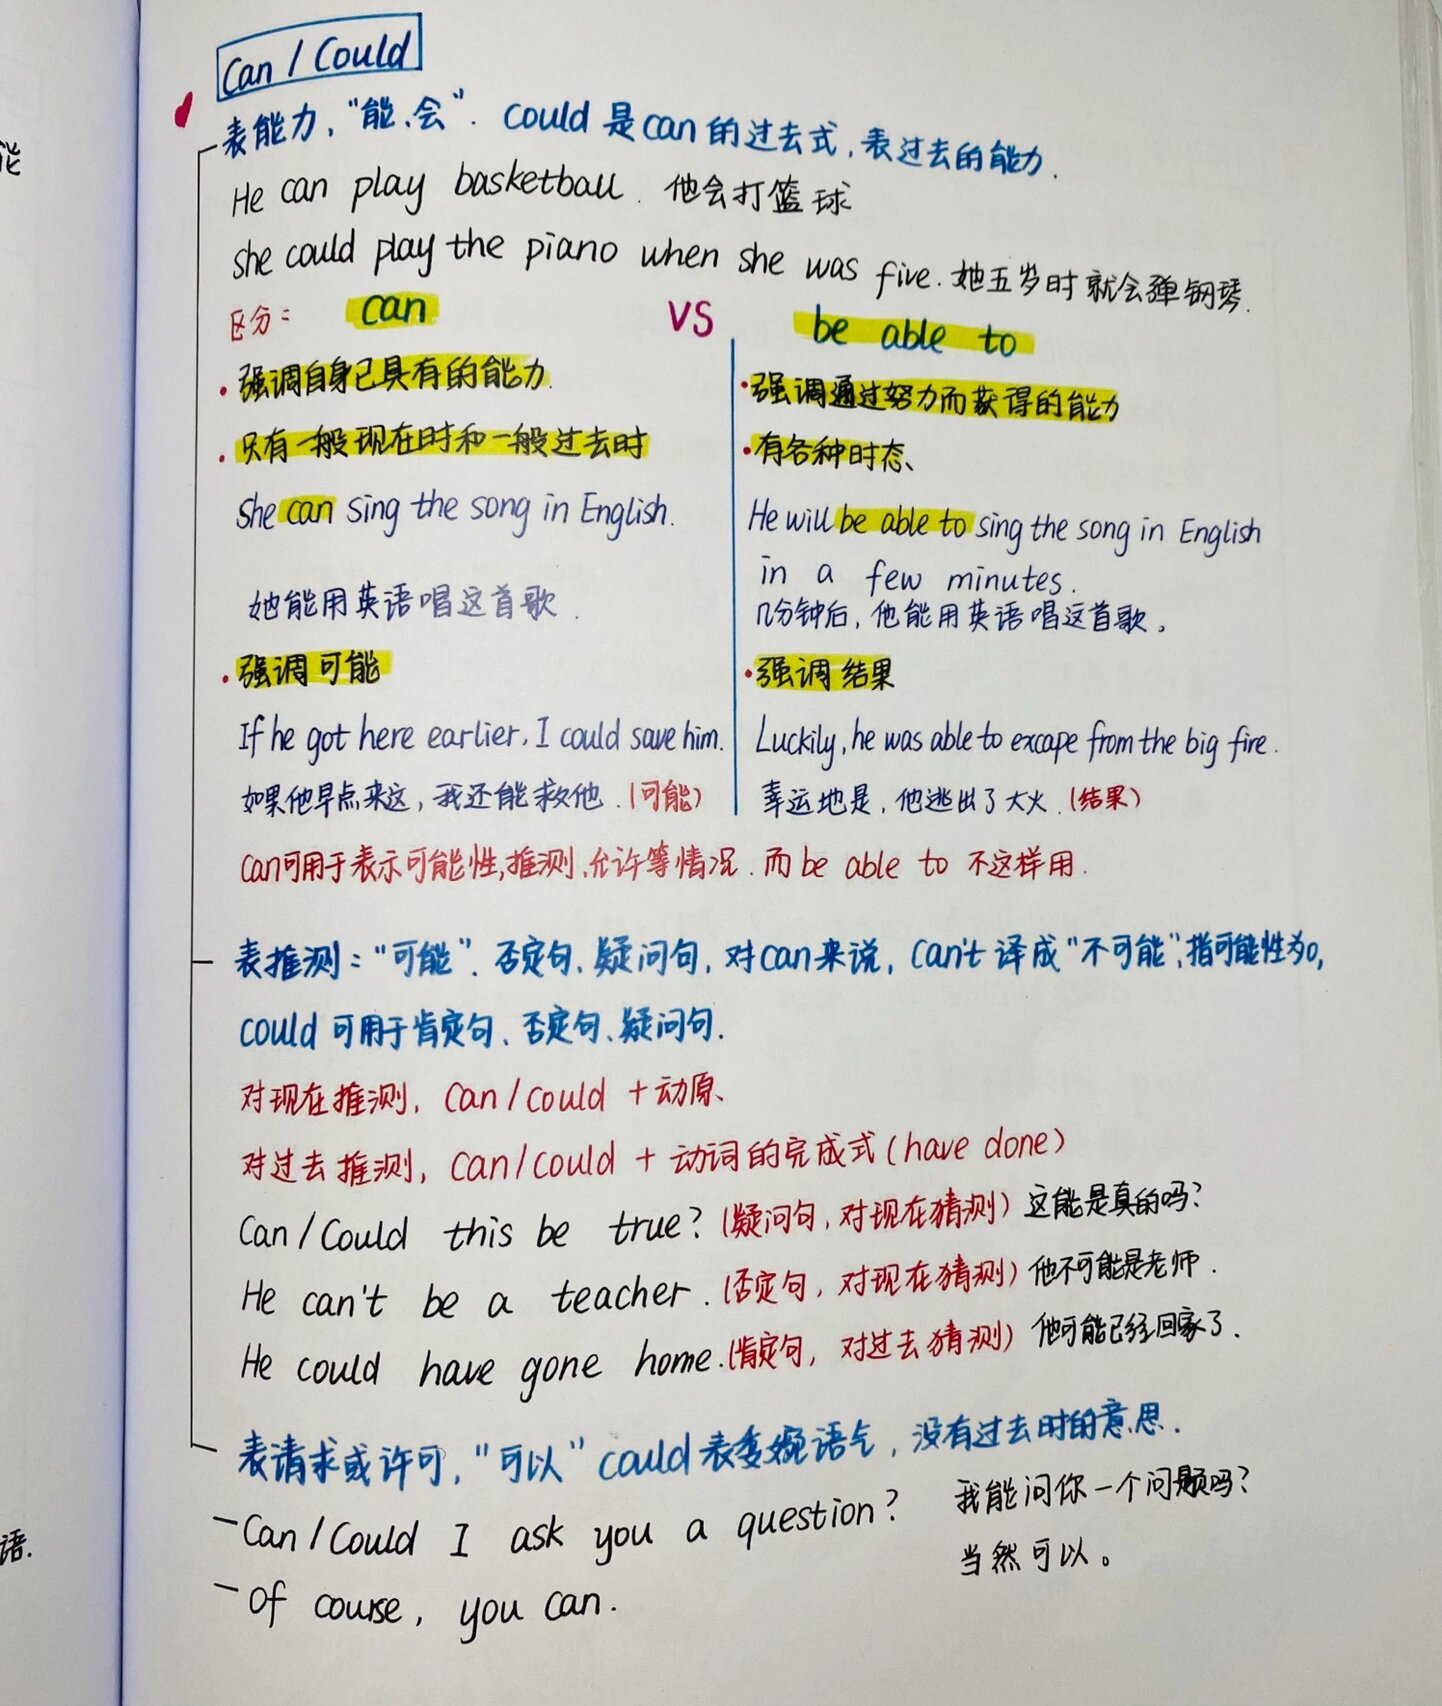 能
Can / Could
表能力，“能、会”. could 是can 的过去式，表过去的能力.
He can play basketball. 他会打篮球
she could play the piano when she was five. 她五岁时就会弹钢琴.
区分： can VS be able to
·强调自身已具有的能力.
·只有一般现在时和一般过去时
She can sing the song in English.
她能用英语唱这首歌.
·强调可能
If he got here earlier, I could save him.
如果他早点来这，我还能救他.（可能）
·强调通过努力而获得的能力
·有各种时态、
He will be able to sing the song in English
in a few minutes.
几分钟后，他能用英语唱这首歌。
·强调结果
Luckily, he was able to excape from the big fire.
幸运地是，他逃出了大火.（结果）
can可用于表示可能性,推测、允许等情况. 而be able to 不这样用.
表推测：“可能”. 否定句、疑问句，对can来说，can't 译成“不可能”,指可能性为0,
could 可用于肯定句、否定句、疑问句.
对现在推测，can/could + 动原、
对过去推测，can/could + 动词的完成式(have done)
Can/Could this be true? (疑问句，对现在猜测) 这能是真的吗？
He can't be a teacher. (否定句，对现在猜测) 他不可能是老师.
He could have gone home. (肯定句，对过去猜测) 他可能已经回家了.
表请求或许可，“可以” could表委婉语气，没有过去时的意思.
-Can/Could I ask you a question? 我能问你一个问题吗？
-Of course, you can. 当然可以。
语.